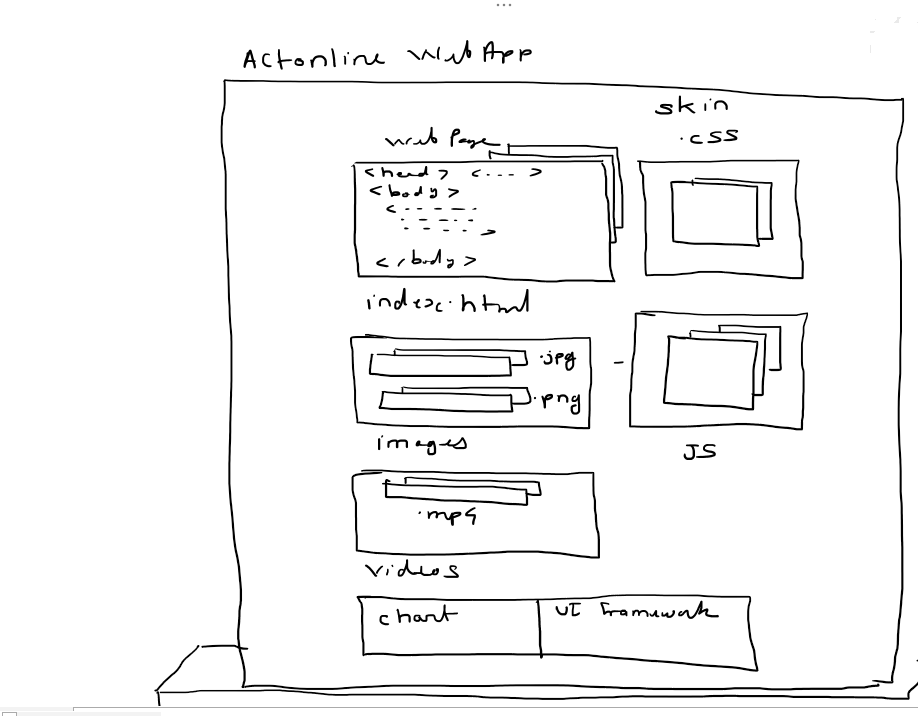 Actonline WebApp
skin
.css
Web Page
<head> <--- >
<body>
<- - - - - -
- - - - -
- - - - - >
</body>
index.html
.jpg
.png
images
JS
.mp4
videos
chart
UI Framework